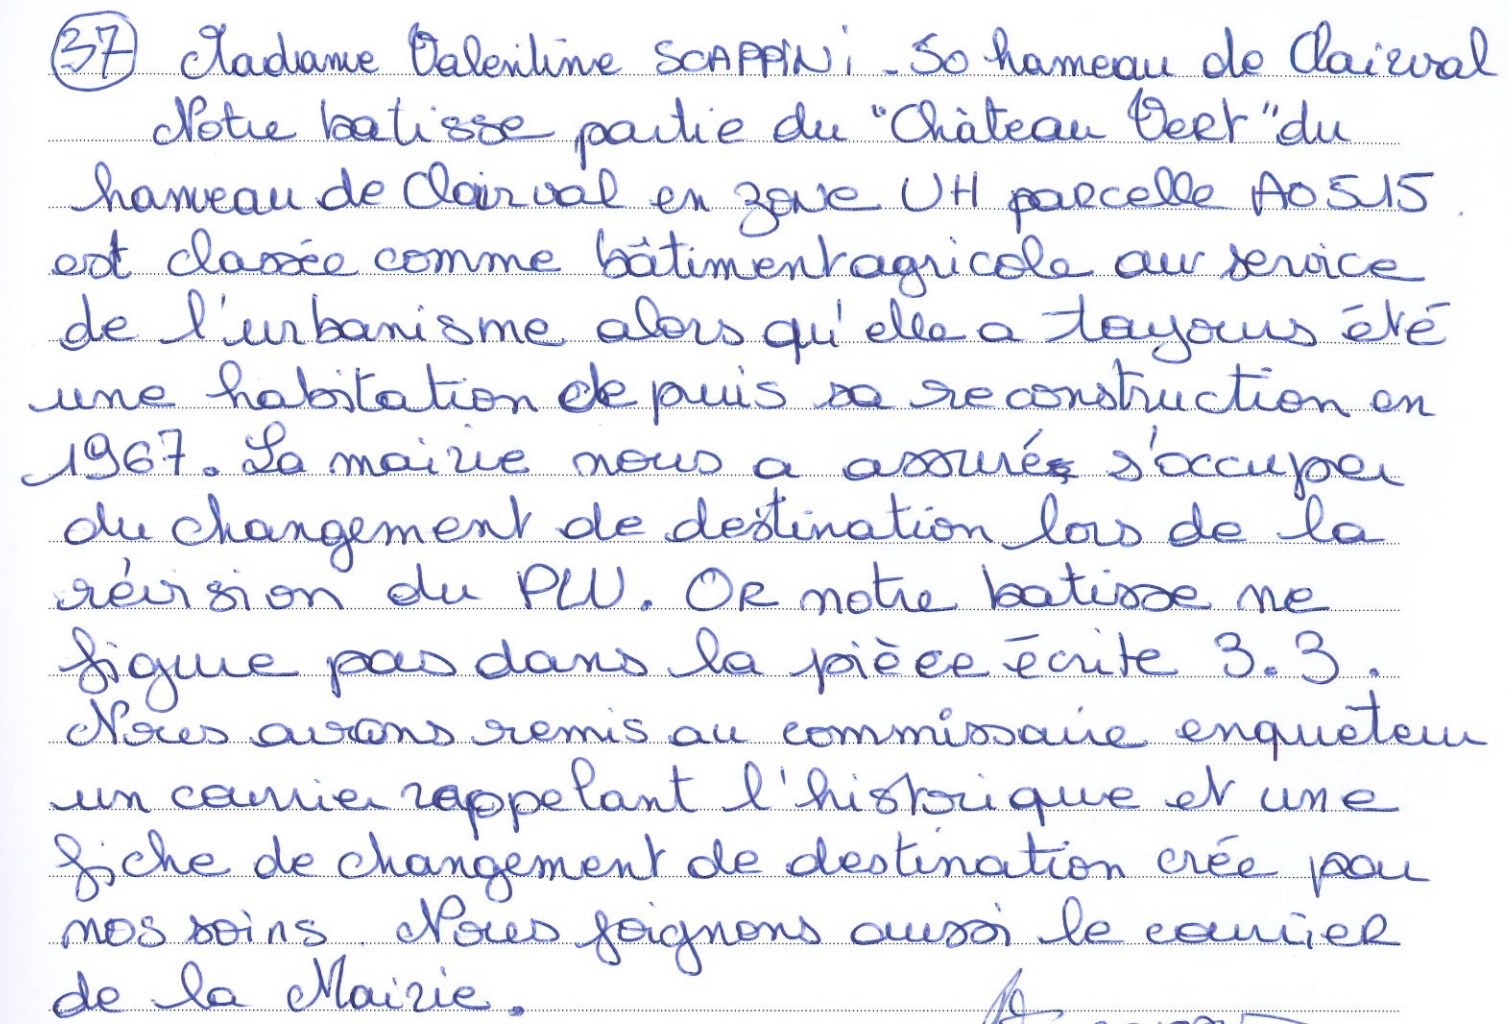 37 Madame Valentine SCAPPINi - 50 hameau de Clairval
Notre batisse partie du "Château Vert" du
hameau de Clairval en zone UH parcelle AO 515
est classée comme bâtiment agricole au service
de l'urbanisme alors qu'elle a toujours été
une habitation depuis sa reconstruction en
1967. La mairie nous a assuré s'occuper
du changement de destination lors de la
révision du PLU. OR notre batisse ne
figure pas dans la pièce écrite 3.3.
Nous avons remis au commissaire enquêteur
un courrier rappelant l'historique et une
fiche de changement de destination crée par
nos soins. Nous joignons aussi le courrier
de la Mairie.